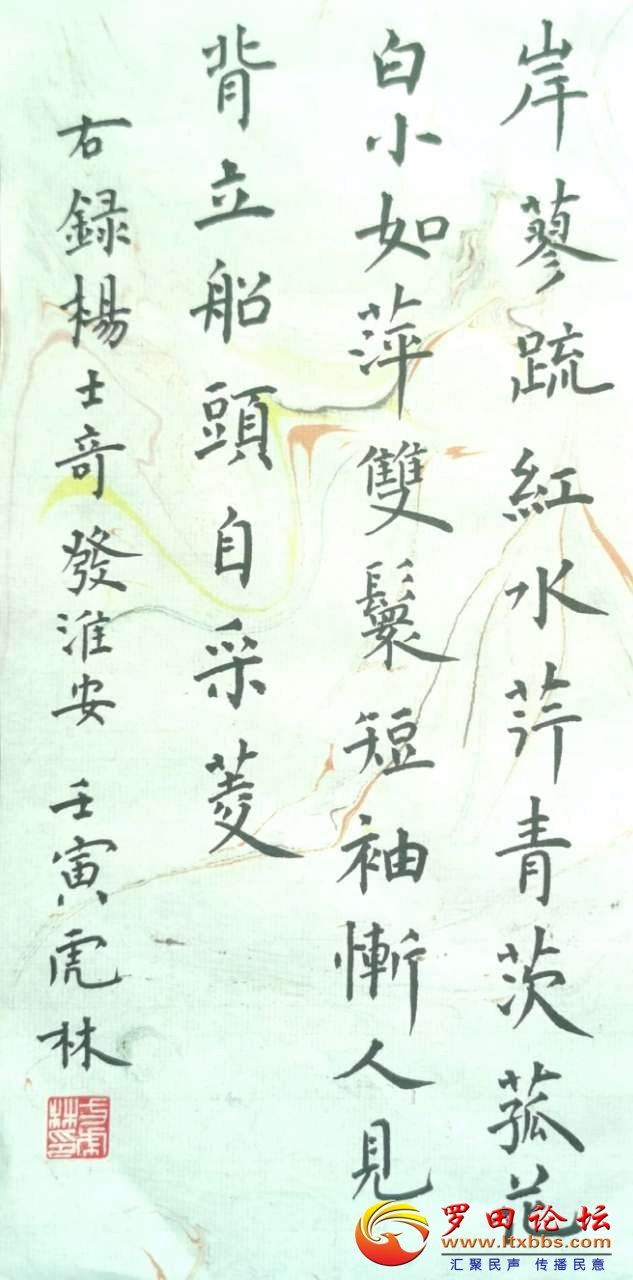 岸蓼疏紅水荇青茨菰花
白小如萍雙鬟短袖慚人見
背立船頭自采菱
右録楊士奇發淮安 壬寅虎林
罗田论坛
www.ltxbbs.com
汇聚民声 传播民意